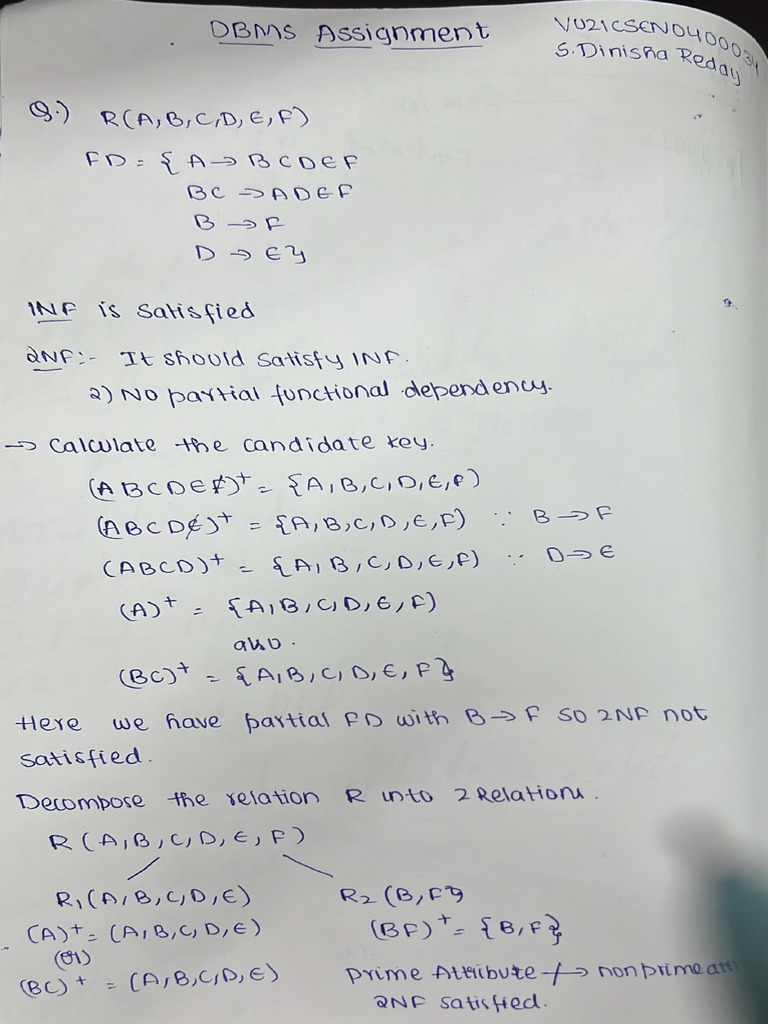 DBMS Assignment
VU21CSEN0400034
S. Dinisha Reddy
Q.) R(A,B,C,D,E,F)
FD = { A → BCDEF
BC → ADEF
B → F
D → E}
1NF is satisfied
2NF:- It should satisfy 1NF.
2) No partial functional dependency.
→ Calculate the candidate key.
(ABCDEF)+ = {A,B,C,D,E,F)
(ABCDE)+ = {A,B,C,D,E,F) ∵ B → F
(ABCD)+ = {A,B,C,D,E,F) ∵ D → E
(A)+ = {A,B,C,D,E,F)
also.
(BC)+ = {A,B,C,D,E,F}
Here we have partial FD with B → F so 2NF not
satisfied.
Decompose the relation R into 2 Relations.
R(A,B,C,D,E,F)
R1(A,B,C,D,E) R2(B,F}
(A)+ = (A,B,C,D,E) (BF)+ = {B,F}
(or)
(BC)+ = (A,B,C,D,E) prime Attribute ↛ nonprime att
2NF satisfied.